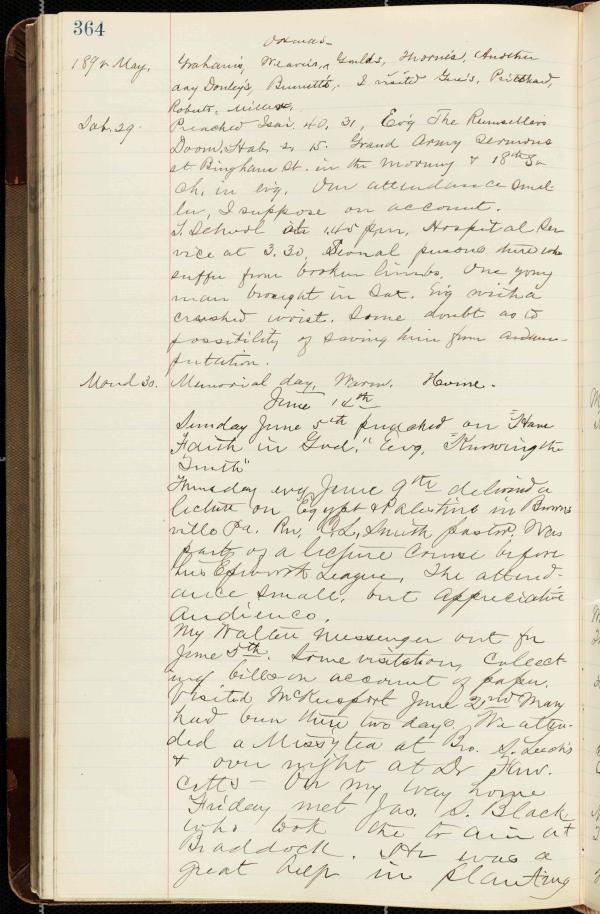 364
1892 May. Graham's, Weaver's, Goulds, Thorne's, Another
day Donley's, Burnetts, I visited Gee's, Pritchard,
Roberts, Miller.
Sab. 29. Preached Isai. 40, 31, Ev'g The Rumsellers
Doom, Hab. 2, 15. Grand Army Sermons
at Bingham St. in the morning & 18th St
Ch. in evg. Our attendance smal-
ler, I suppose on account.
S. School at 1.45 p.m, Hospital Ser-
vice at 3.30, Several persons there who
suffer from broken limbs. One young
man brought in Sat. Ev'g with a
crushed wrist. Some doubt as to
possibility of saving him from
putation.
Mond 30. Memorial day, Warm. Home.
June 14th
Sunday June 5th preached on "Have
Faith in God." Evg, "Knowing the
Truth"
Thursday evg June 9th delivered a
lecture on Egypt & Palestine in Browns
ville Pa. Rev. C.L. Smith pastor. Was
part of a lecture course before
his Epworth League. The attend-
ance small, but appreciative
audience.
My Walton Messenger out for
June 5th. Some visitation, Collect-
ing bills on account of paper.
Visited McKeesport June 2nd Mary
had been there two days. We atten-
ded a Miss'y tea at Bro. S. Leech's
& over night at Dr Faw-
cetts - On my way home
Friday met Jas. S. Black
who took the train at
Braddock. He was a
great help in planting